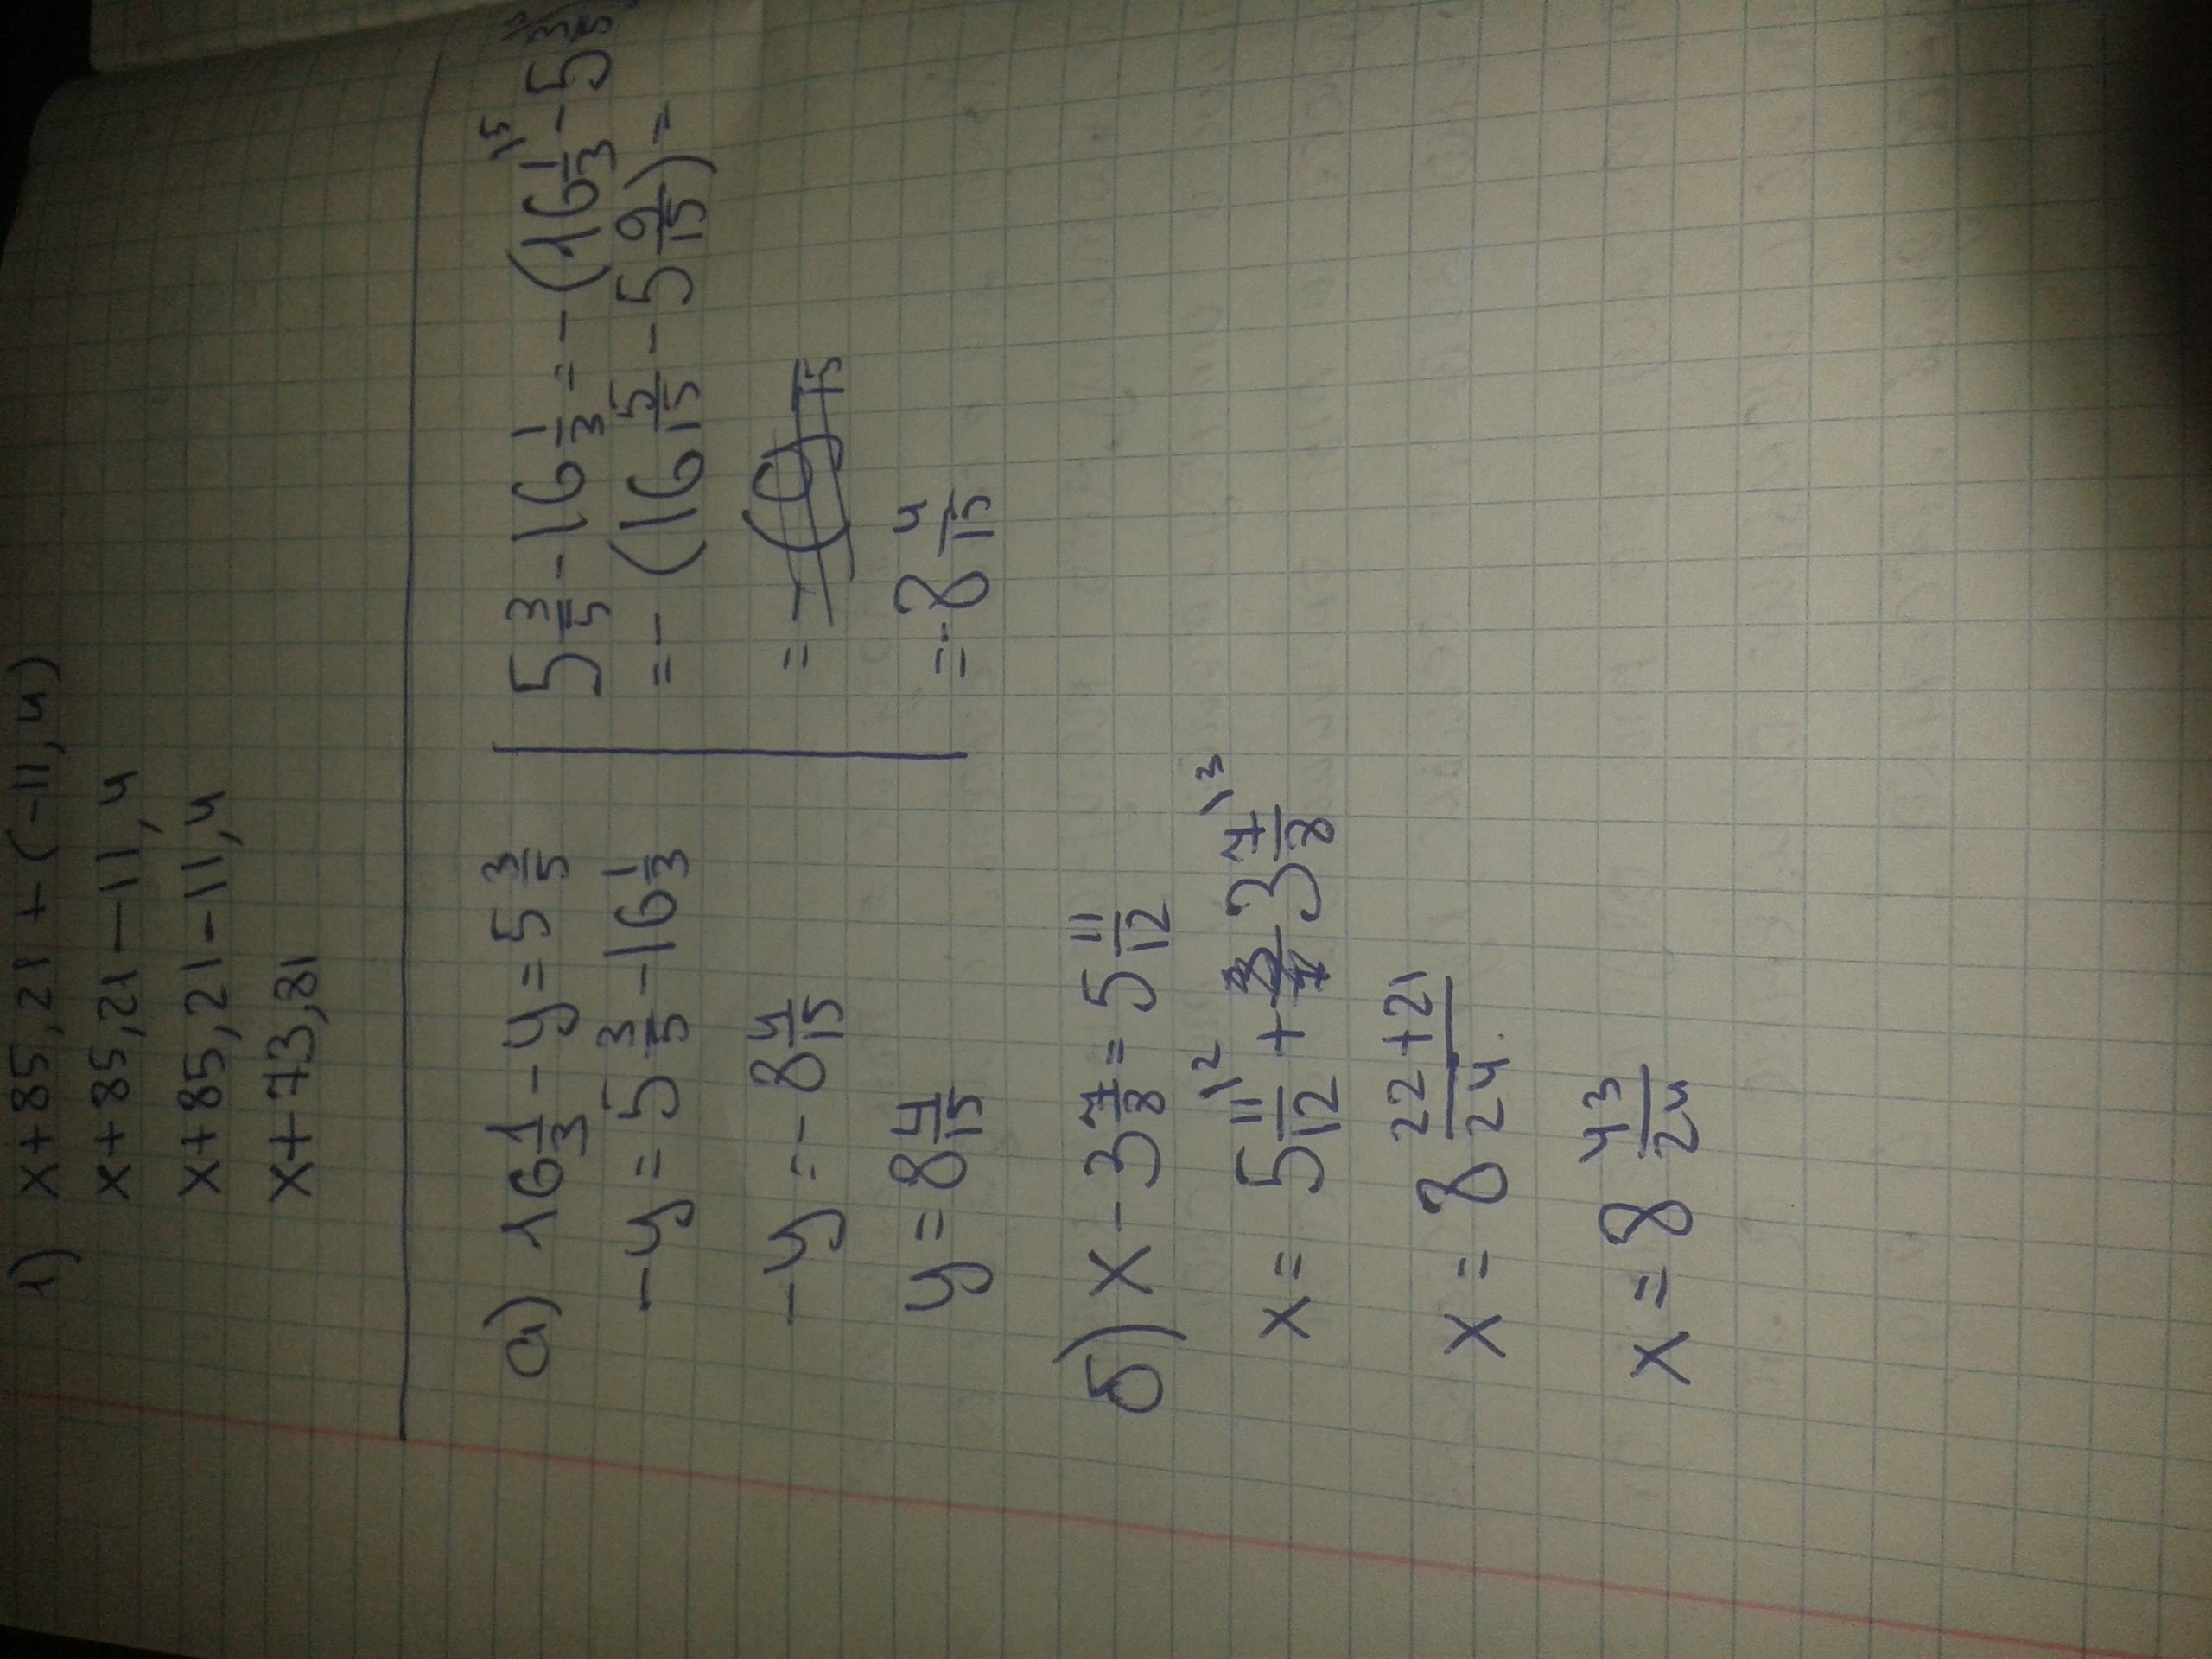 1) x+85,21+(-11,4)
x+85,21-11,4
x+85,21-11,4
x+73,81
а) 16 1/3 - y = 5 3/5
-y = 5 3/5 - 16 1/3
-y = -8 4/15
y = 8 4/15
5 3/5 - 16 1/3 = -(16 1/3 - 5 3/5
= -(16 5/15 - 5 9/15) =
= -
= -8 4/15
б) x - 3 7/8 = 5 11/12
x = 5 11/12 + 3 7/8
x = 8 22+21/24
x = 8 43/24